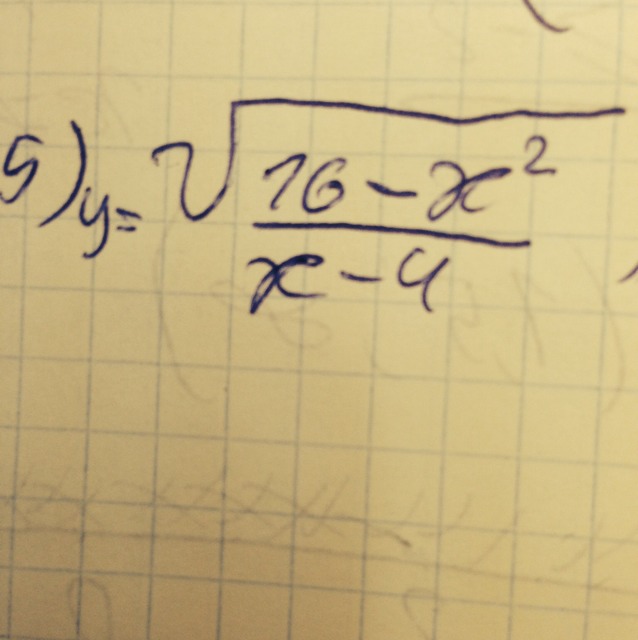 5) y = √((16 - x²)/(x - 4))